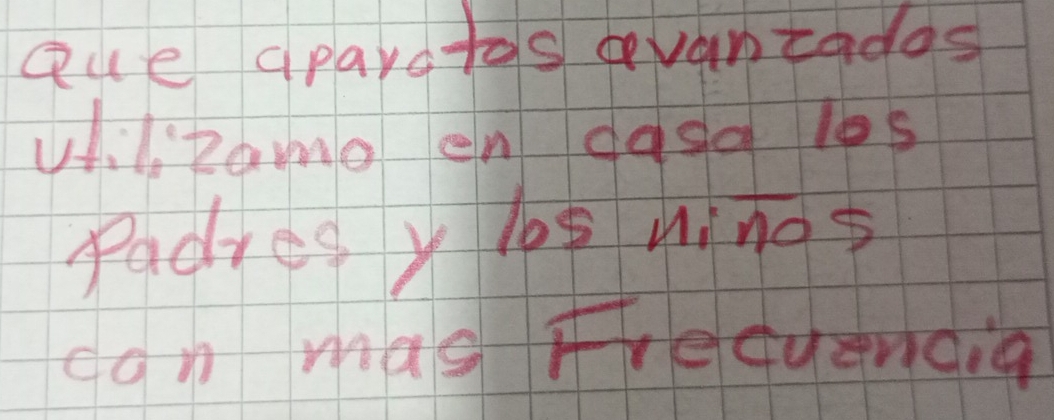 Que aparatos avanzados
utilizamo en casa los
Padres y los niños
con mas Frecuencia